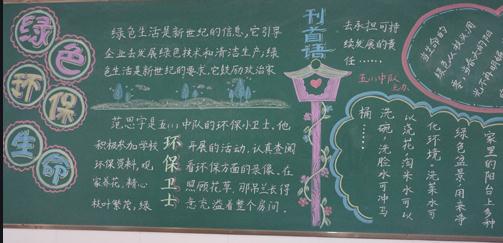 绿色环保生命
刊首语
绿色生活是新世纪的信息,它引导
企业去发展绿色技术和清洁生产;绿
色生活是新世纪的要求,它鼓励政治家
去承担可持
续发展的责
任……
五八中队
主办
环保卫士
范思宇是五八中队的环保小卫士。他
积极参加学校开展的活动,认真查阅
环保资料,观看环保方面的录像。在
家养花,精心照顾花草,那吊兰长得
枝叶繁茂,绿意充溢着整个房间。
家里的阳台上多种
绿色盆景,用来净
化环境,洗菜水可
以浇花,淘米水可以
洗碗,洗脸水可冲马
桶……
当生命的
绿色从枝头用